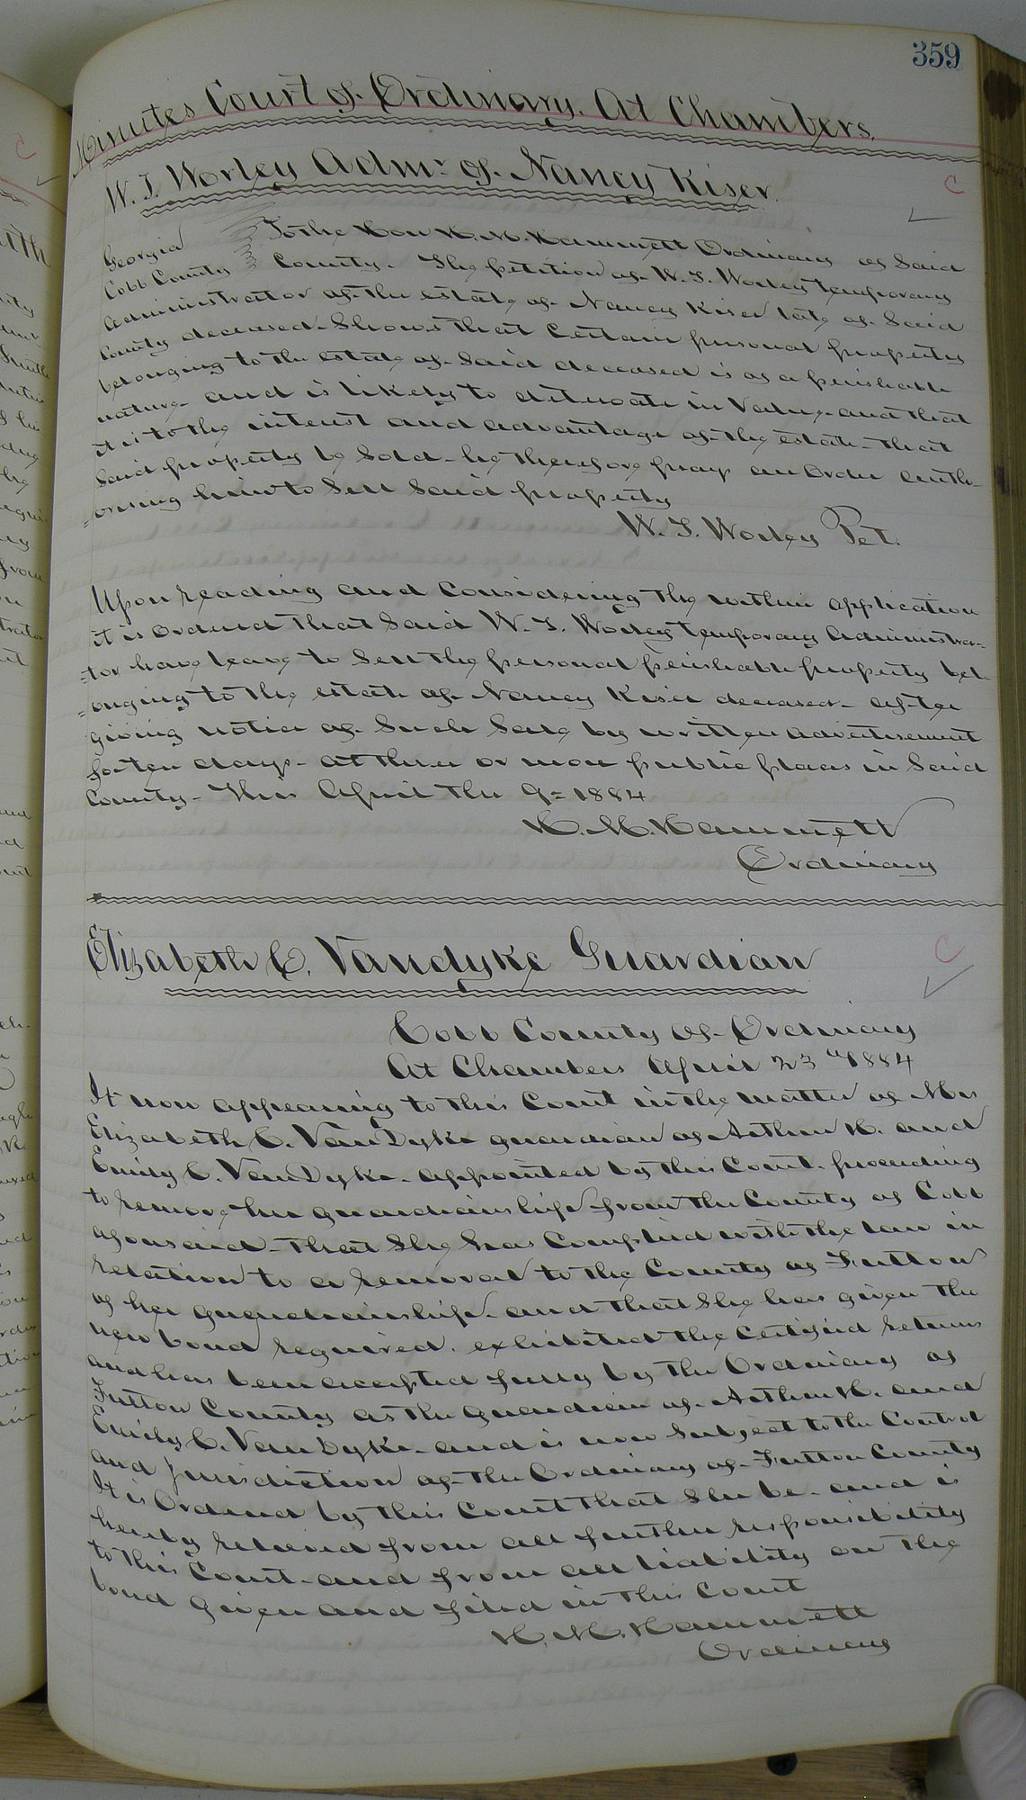 359
Minutes Court of Ordinary. At Chambers.
W. J. Worley Admr. of Nancy Kiser.
Georgia
Cobb County
To the Hon H. M. Hammett Ordinary of Said
County. The petition of W. J. Worley temporary
Administrator of the estate of Nancy Kiser late of Said
County deceased. Shows that Certain personal property
belonging to the estate of Said deceased is of a perishable
nature and is likely to deteriorate in Value and that
it is to the interest and advantage of the estate that
Said property be Sold. he therefore prays an Order autho-
-orising him to Sell Said property
W. J. Worley Pet.
Upon reading and Considering the within application
it is Ordered that Said W. J. Worley temporary Administra-
-tor have leave to Sell the personal perishable property bel-
-onging to the estate of Nancy Kiser deceased. after
giving notice of Such Sale by written advertisement
for ten days. at three or more public places in Said
County. This April the 9= 1884
H. M. Hammett
Ordinary
Elizabeth C. Vandyke Guardian
Cobb County of Ordinary
At Chambers April 23rd 1884
It now appearing to this Court in the matter of Mrs
Elizabeth C. VanDyke guardian of Arthur H. and
Emily C. VanDyke. appointed by this Court. proceeding
to remove her guardianship from the County of Cobb
aforesaid. that She has Complied with the law in
relation to a removal to the County of Fulton
of her guardianship. and that She has given the
new bond required. exhibited the Certified returns
and has been accepted fully by the Ordinary of
Fulton County as the guardian of Arthur H. and
Emily C. VanDyke. and is now Subject to the Control
and Jurisdiction of the Ordinary of Fulton County
It is Ordered by this Court that She be. and is
hereby relieved from all further responsibility
to this Court. and from all liability on the
bond given and filed in this Court
H. M. Hammett
Ordinary